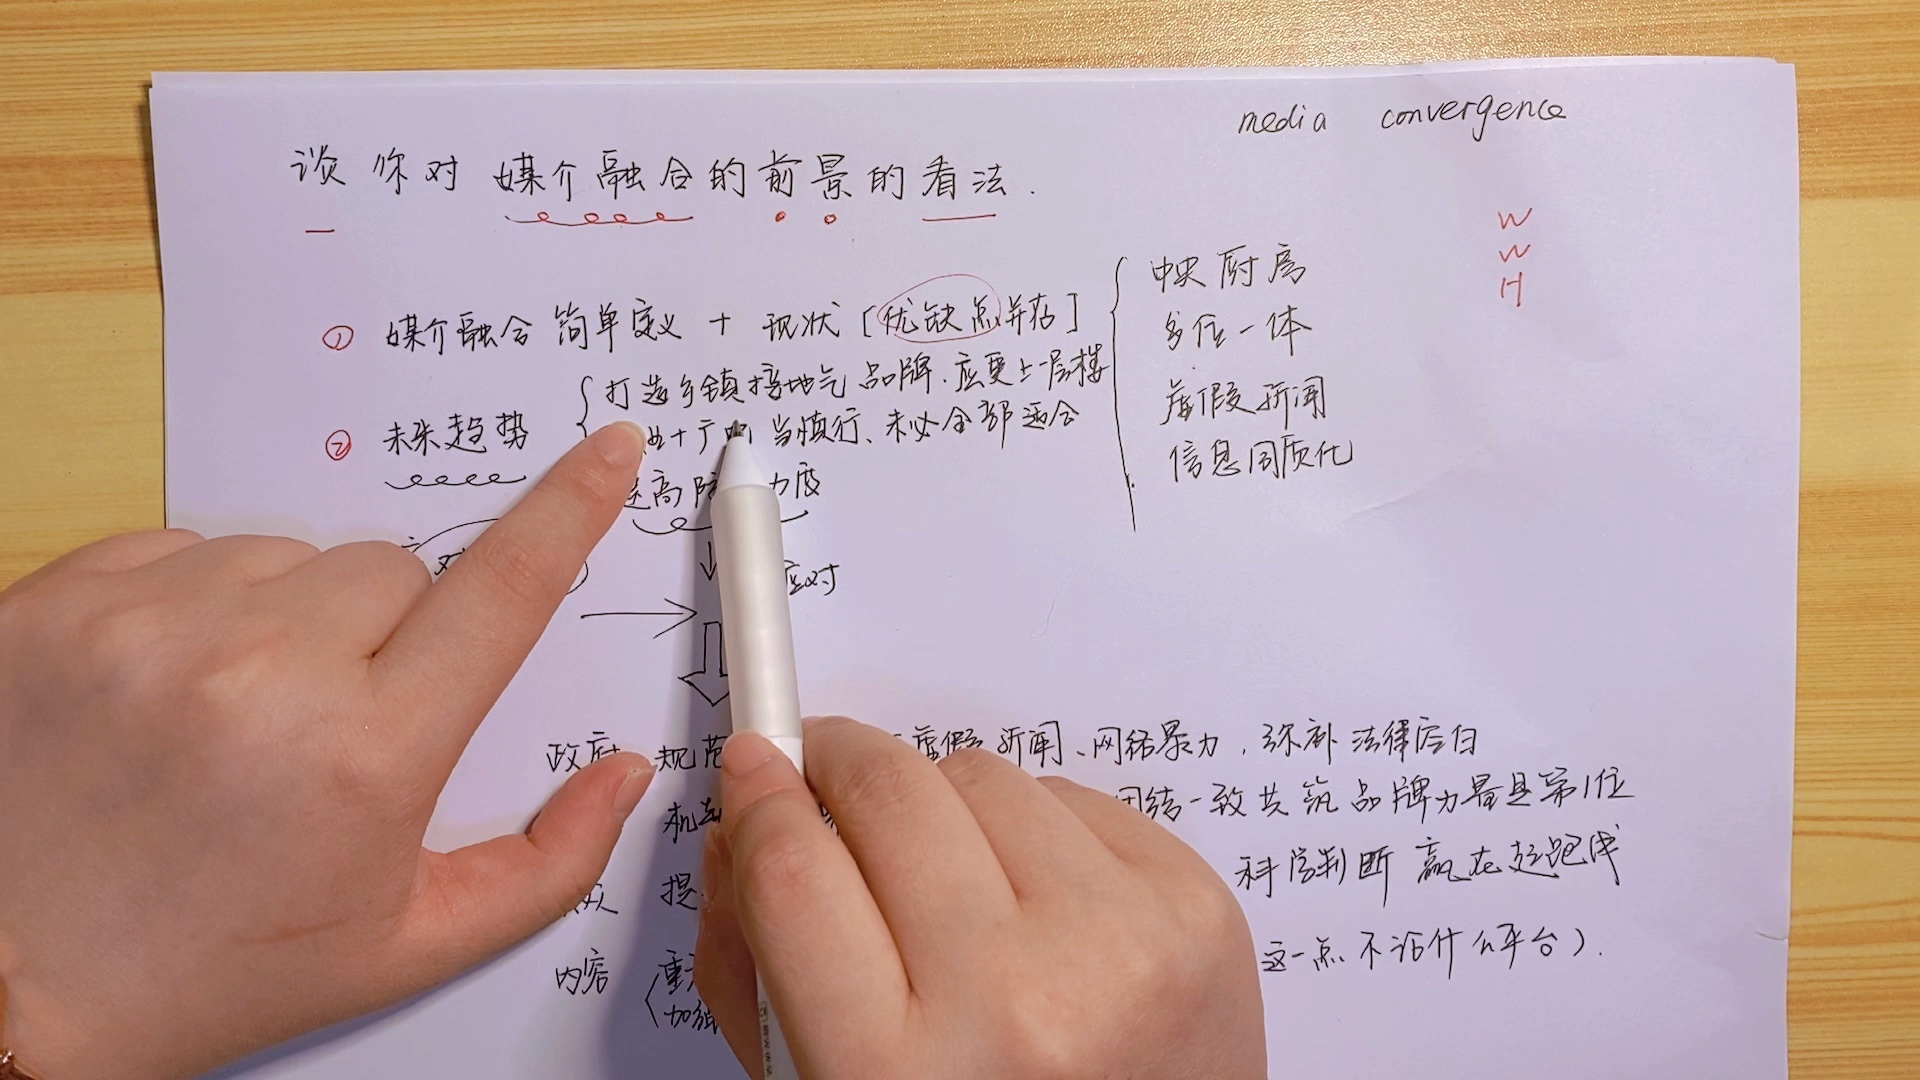 media convergence
谈你对媒介融合的前景的看法.
W
W
H
① 媒介融合 简单定义 + 现状 [优缺点并存]
中央厨房
多位一体
虚假新闻
信息同质化
② 未来趋势
打造乡镇接地气品牌.应更上一层楼
当慎行、未必全部适合
高防 力度
应对
政府 规范 虚假新闻、网络暴力,弥补法律空白
团结一致共筑品牌力量是第1位
科学判断 赢在起跑线
提
内容 重 这一点不论什么平台).
加强